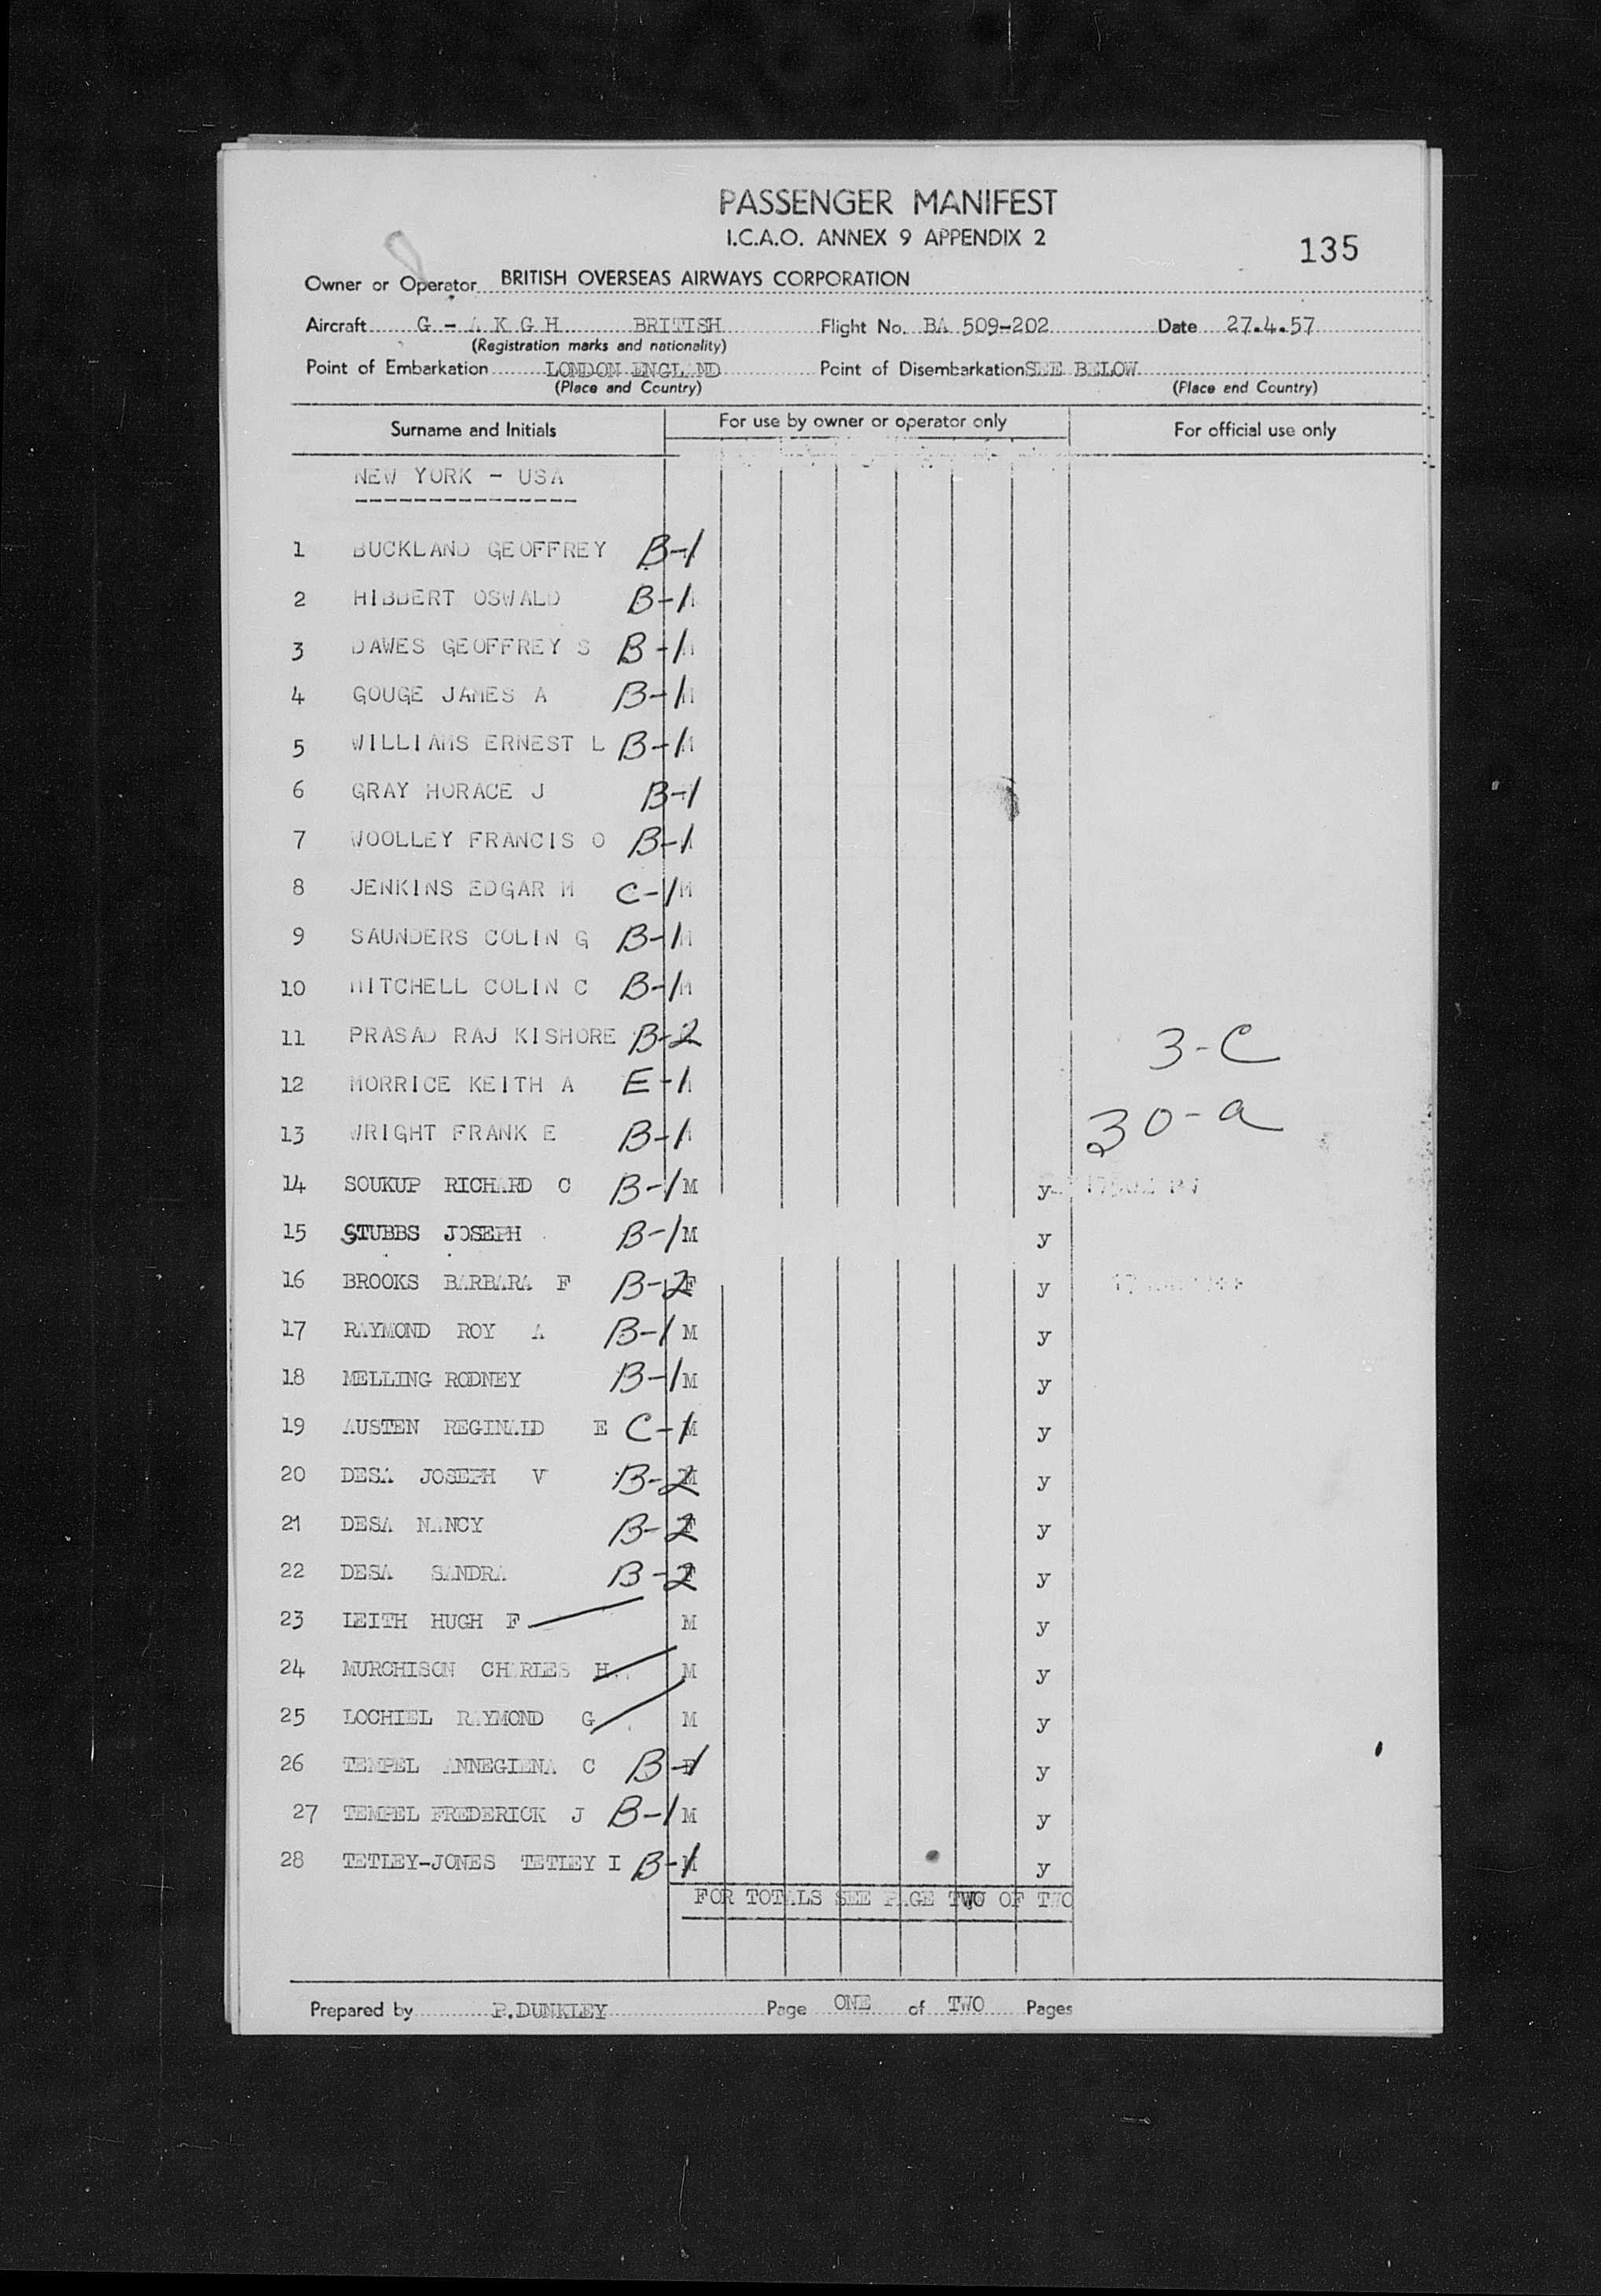 PASSENGER MANIFEST
I.C.A.O. ANNEX 9 APPENDIX 2
135
Owner or Operator BRITISH OVERSEAS AIRWAYS CORPORATION
Aircraft G - A K G H BRITISH Flight No. BA 509-202 Date 27.4.57
(Registration marks and nationality)
Point of Embarkation LONDON ENGLAND Point of Disembarkation SEE BELOW
(Place and Country) (Place and Country)
Surname and Initials For use by owner or operator only For official use only
NEW YORK - USA
1 BUCKLAND GEOFFREY B-1
2 HIBBERT OSWALD B-1
3 DAWES GEOFFREY S B-1 M
4 GOUGE JAMES A B-1 M
5 WILLIAMS ERNEST L B-1 M
6 GRAY HORACE J B-1
7 WOOLLEY FRANCIS O B-1
8 JENKINS EDGAR M C-1 M
9 SAUNDERS COLIN G B-1 M
10 MITCHELL COLIN C B-1 M
11 PRASAD RAJ KISHORE B-2 3-C
12 MORRICE KEITH A E-1
30-a
13 WRIGHT FRANK E B-1
14 SOUKUP RICHARD C B-1 M y
15 STUBBS JOSEPH B-1 M y
16 BROOKS BARBARA F B-2 F y
17 RAYMOND ROY A B-1 M y
18 MELLING RODNEY B-1 M y
19 AUSTEN REGINALD E C-1 M y
20 DESA JOSEPH V B-2 M y
21 DESA NANCY B-2 F y
22 DESA SANDRA B-2 F y
23 LEITH HUGH F M y
24 MURCHISON CHARLES H M y
25 LOCHIEL RAYMOND G M y
26 TEMPEL ANNEGIENA C B-1 F y
27 TEMPEL FREDERICK J B-1 M y
28 TETLEY-JONES TETLEY I B-1 M y
FOR TOTALS SEE PAGE TWO OF TWO
Prepared by P.DUNKLEY Page ONE of TWO Pages